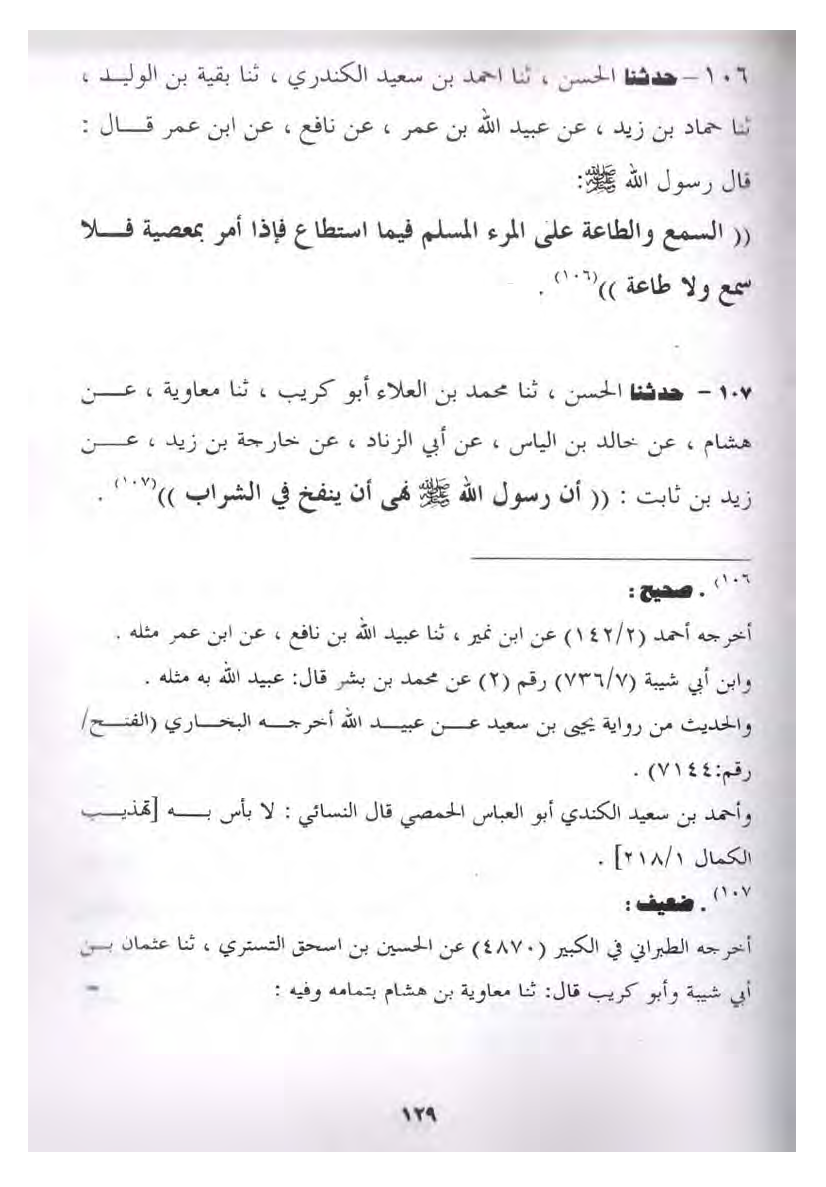 ١٠٦ – حدثنا الحسن ، ثنا احمد بن سعيد الكندري ، ثنا بقية بن الوليد ،
ثنا حماد بن زيد ، عن عبيد الله بن عمر ، عن نافع ، عن ابن عمر قال :
قال رسول الله ﷺ:
(( السمع والطاعة على المرء المسلم فيما استطاع فإذا أمر بمعصية فلا
سمع ولا طاعة ))(١٠٦) .
١٠٧ – حدثنا الحسن ، ثنا محمد بن العلاء أبو كريب ، ثنا معاوية ، عن
هشام ، عن خالد بن الياس ، عن أبي الزناد ، عن خارجة بن زيد ، عن
زيد بن ثابت : (( أن رسول الله ﷺ نهى أن ينفخ في الشراب ))(١٠٧) .
١٠٦) . صحيح :
أخرجه أحمد (١٤٢/٢) عن ابن نمير ، ثنا عبيد الله بن نافع ، عن ابن عمر مثله .
وابن أبي شيبة (٧٣٦/٧) رقم (٢) عن محمد بن بشر قال: عبيد الله به مثله .
والحديث من رواية يحيى بن سعيد عن عبيد الله أخرجه البخاري (الفتح/
رقم:٧١٤٤) .
وأحمد بن سعيد الكندي أبو العباس الحمصي قال النسائي : لا بأس به [تهذيب
الكمال ٢١٨/١] .
١٠٧) . ضعيف :
أخرجه الطبراني في الكبير (٤٨٧٠) عن الحسين بن اسحق التستري ، ثنا عثمان بن
أبي شيبة وأبو كريب قال: ثنا معاوية بن هشام بتمامه وفيه : =
١٢٩